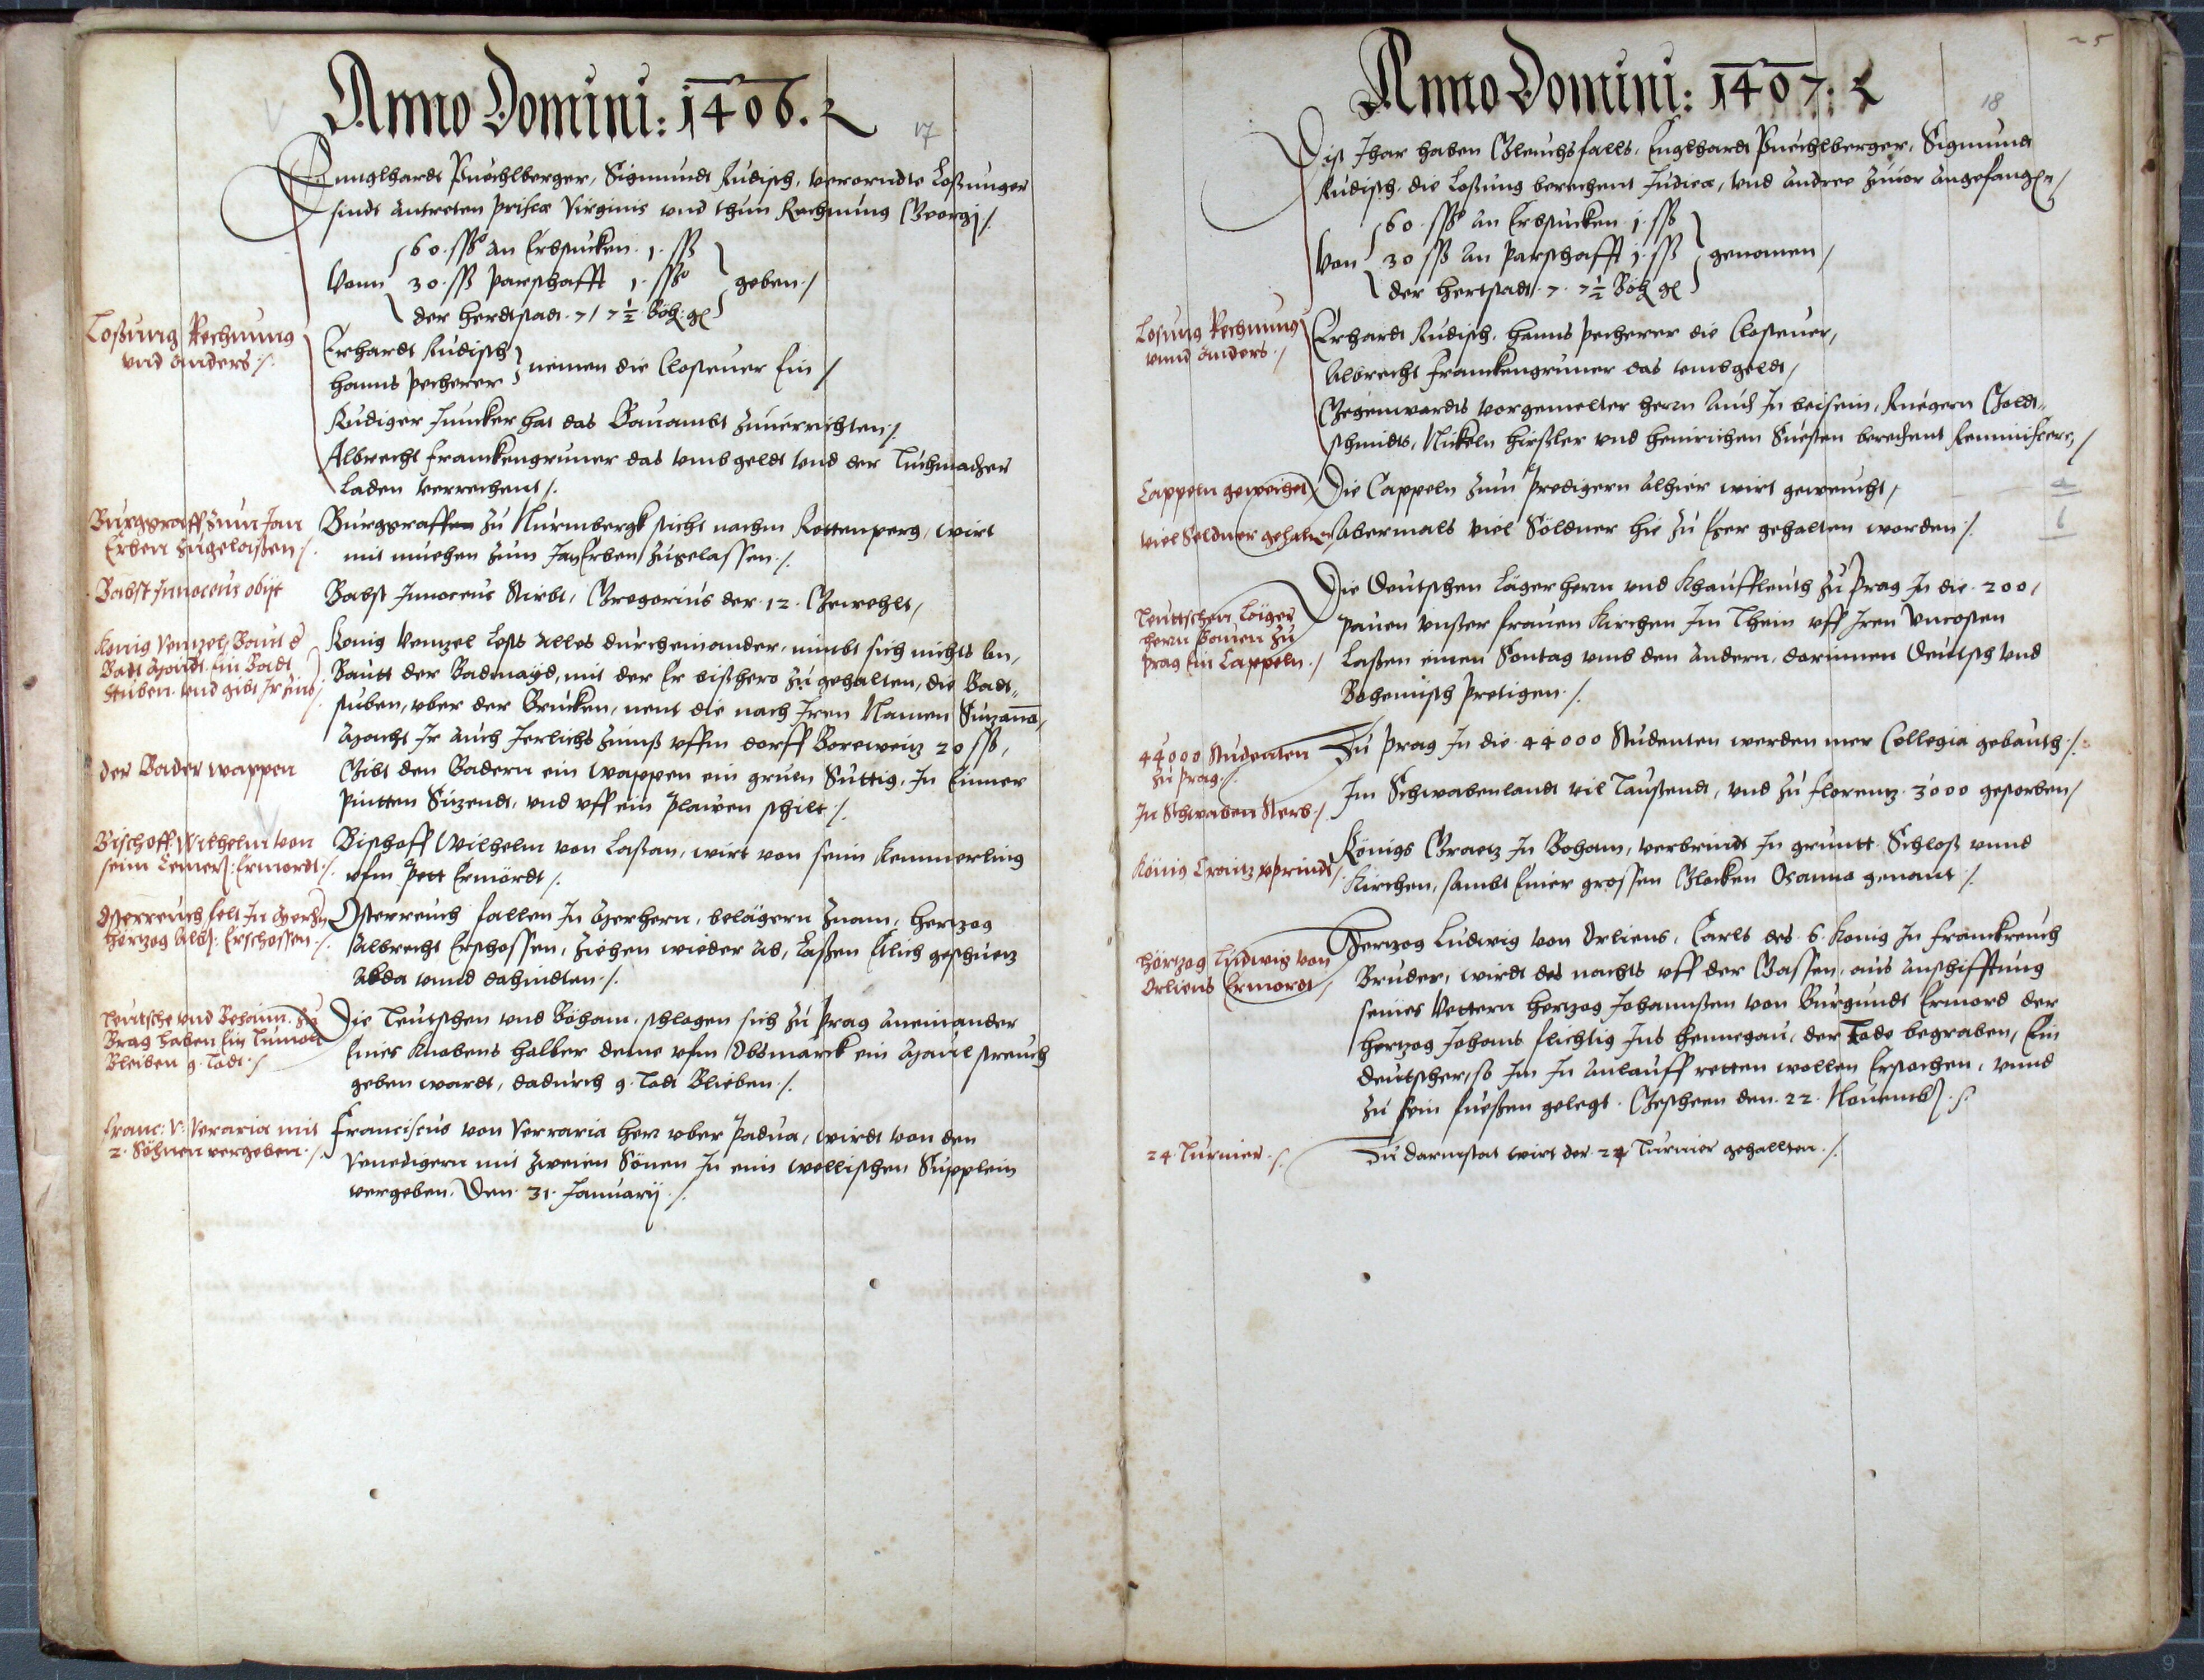 Anno Domini: 1406.
17
Ennglhardt Puechlberger, Sigmundt Rudisch, verorndte Loßunger
sindt antreten Priscæ Virginis vnd thun Rechnung Georgi /.
60. ßß an Erbstucken 1. ßß
Vonn 30. ßß Parschafft 1. ßß geben /
der Herdtstadt 7 / 7 ½ Böh: gl
Loßung Rechnung
vnd anders /.
Erhardt Rudisch
Hanns Pecherer nemen die Closteuer Ein /
Rudiger Juncker hat das Bauambt zuuerrichten /.
Albrecht Franckengruner das vmbgeldt vnd der Tuchmacher
Laden verrechent /.
Burggraff zum Jan
Erben zugelaßen /.
Burggraff zu Nurmbergk sicht nachm Rottenperg, wirt
mit muehen zum Jan Erben zugelassen /.
Babst Innocens obijt
Babst Innocens Stirbt, Gregorius der 12. Gewehlt,
Konig Venzel Baut d
Badt Magdt Ein Badt
Stuben vnd gibt Ir Zins /.
Konig Venzel Lests alles durcheinander, nimbt sich nichts an,
Bautt der Badmayd, mit der Er bißhero zugehalten, die Badt„
stuben, vber der Brucken, nent die nach Iren Namen Suzanna,
Macht Ir auch Jerlichs Zinnß vffm dorff Boreweiz 20 ßß,
der Bader wappen
Gibt den Badern ein Wappen ein gruen Suttig, In Einner
Pintten Sizendt, vnd vff ein Plawen schilt /.
Bischoff Wilhelm von
seim Cemerl: Ermordt /.
Bischoff Wilhelm von Lasan, wirt von seim Kemmerling
vfm Pett Ermördt /.
Österreuch felt In Merhrn
Hertzog Alb: Erschossen /.
Osterreuch fallen In Merhern, belägern Znam, Hertzog
Albrecht Erschossen, ziehen wieder ab, Laßen Etlich geschuetz
Alda vnnd dahindten /.
Teutsche vnd Behaim zu
Brag haben Ein Tumolt
Bleiben 9. Todt /.
Die Teutschen vnd Böham, schlagen sich zu Prag aneinander
Eines Knabens halber deme vfm Obsmarck ein Maul streuch
geben wardt, dadurch 9. Todt Blieben /.
Franc: V: Veraria mit
2. Söhnen vergeben /.
Franciscus von Verraria Herr vber Padua, wirdt von den
Venedigern mit zweien Sönen In eim wellischen Supplein
vergeben. Den 31. Januarij /.
25
Anno Domini: 1407:
18
Diß Ihar haben Gleuchsfalls, Englhardt Puechlberger, Sigmundt
Rudisch die Loßung berechent Judica, vnd Andree zuuor angefangen /
60. ßß an Erbstucken j. ßß
Von 30 ßß an Parschafft j. ßß genomen /
der Hertstadt 7. 7 ½ Böh gl
Losung Rechnung
vnnd anders /.
Erhardt Rudisch, Hanns Pecherer die Closteuer,
Albrecht Franckengruner das vmbgeldt,
Gegenwardts vorgemelter Herrn auch In beisein, Ruegern Goldt„
schmidts, Nickeln Hirßler vnd Heinrichen Suesten berechent Reminiscere, /
Cappeln geweihet
Die Cappeln zum Predigern alhier wirt geweucht,
a
viel Soldner gehalten
Abermals viel Söldner hie zu Eger gehalten worden /.
b
Teuttschen Läger
herrn Bawen zu
Prag Ein Cappeln /.
Die Deutschen Läger herrn vnd Khauffleuth zu Prag In die 200,
Pauen vnßer frauen Kirchen Im Thein vff Iren Vncosten
Laßen einen Sontag vmb den andern, darinnen Deutsch vnd
Bohemisch Predigen /.
44000 Studenten
zu Prag /.
Zu Prag In die 44000 Studenten werden mer Collegia gebauth /.
In Schwaben Sterb /.
Im Schwabenlandt vil Taußendt, vnd zu Florentz 3000 gestorben /
König Craitz vprindt /.
Königs Graetz In Beham, verbrindt In gruntt Schloß vnnd
Kirchen, sambt Einer grossen Glocken Osanna genant /.
Hörtzog Ludwig von
Orliens Ermordt /
Hertzog Ludwig von Orliens, Carls des 6. Konig In Franckreuch
Bruder, wirdt des nachts vff der Gassen, aus anschifftung
seines Vettern Hertzog Johannßen von Burgundt Ermord der
Hertzog Johans flichtig Ins Hennegau, der Tode begraben, Ein
Deutscher, so Im In anlauff retten wollen Erstochen, vnnd
zu sein fueßen gelegt. Gescheen den 22. Nouemb. /.
24 Turnier. /.
Zu Darmstat wirt der 24 Turnier gehallten /.